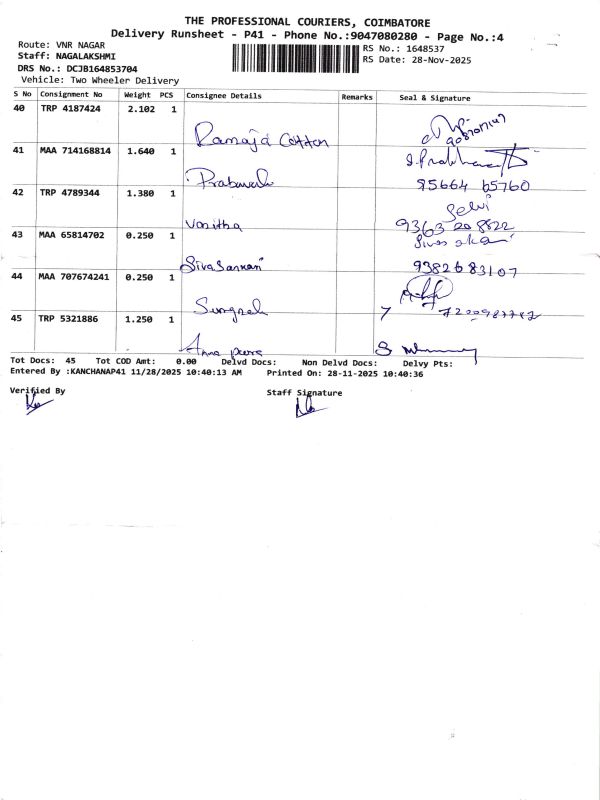 THE PROFESSIONAL COURIERS, COIMBATORE
Delivery Runsheet - P41 - Phone No.:9047080280 - Page No.:4
Route: VNR NAGAR
RS No.: 1648537
Staff: NAGALAKSHMI
RS Date: 28-Nov-2025
DRS No.: DCJB164853704
Vehicle: Two Wheeler Delivery
S No Consignment No Weight PCS Consignee Details Remarks Seal & Signature
40 TRP 4187424 2.102 1
Ramaja Cotton
41 MAA 714168814 1.640 1
S. Prabha
95664 65760
42 TRP 4789344 1.380 1
Selvi
Vanitha 9363 208822
43 MAA 65814702 0.250 1
Sivasankari 9382683107
44 MAA 707674241 0.250 1
45 TRP 5321886 1.250 1
Tot Docs: 45 Tot COD Amt: 0.00 Delvd Docs: Non Delvd Docs: Delvy Pts:
Entered By :KANCHANAP41 11/28/2025 10:40:13 AM Printed On: 28-11-2025 10:40:36
Verified By Staff Signature